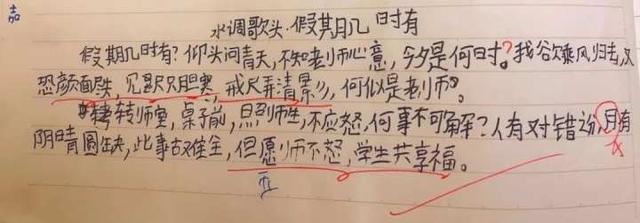 水调歌头·假其月几时有
假期几时有?仰头问青天,不知老师心意,今夕是何日时?我欲乘风归去,又
恐颜面跌,见尺只胆寒,戒尺弄清影,何似是老师。
转师室,桌子前,照师生,不应怒,何事不可解?人有对错汾,月有
阴晴圆缺,此事古难全,但愿师不怒,学生共享福。